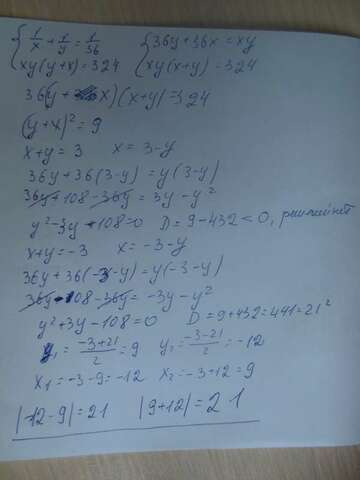 { 1/x + 1/y = 1/36 { 36y+36x=xy
{ xy(y+x)=324 { xy(x+y)=324
36(y+x)(x+y)=324
(y+x)²=9
x+y=3 x=3-y
36y+36(3-y)=y(3-y)
36y+108-36y=3y-y²
y²-3y+108=0 D=9-432<0, решений нет
x+y=-3 x=-3-y
36y+36(-3-y)=y(-3-y)
36y-108-36y=-3y-y²
y²+3y-108=0 D=9+432=441=21²
y₁=(-3+21)/2=9 y₂=(-3-21)/2=-12
x₁=-3-9=-12 x₂=-3+12=9
|-12-9|=21 |9+12|=21